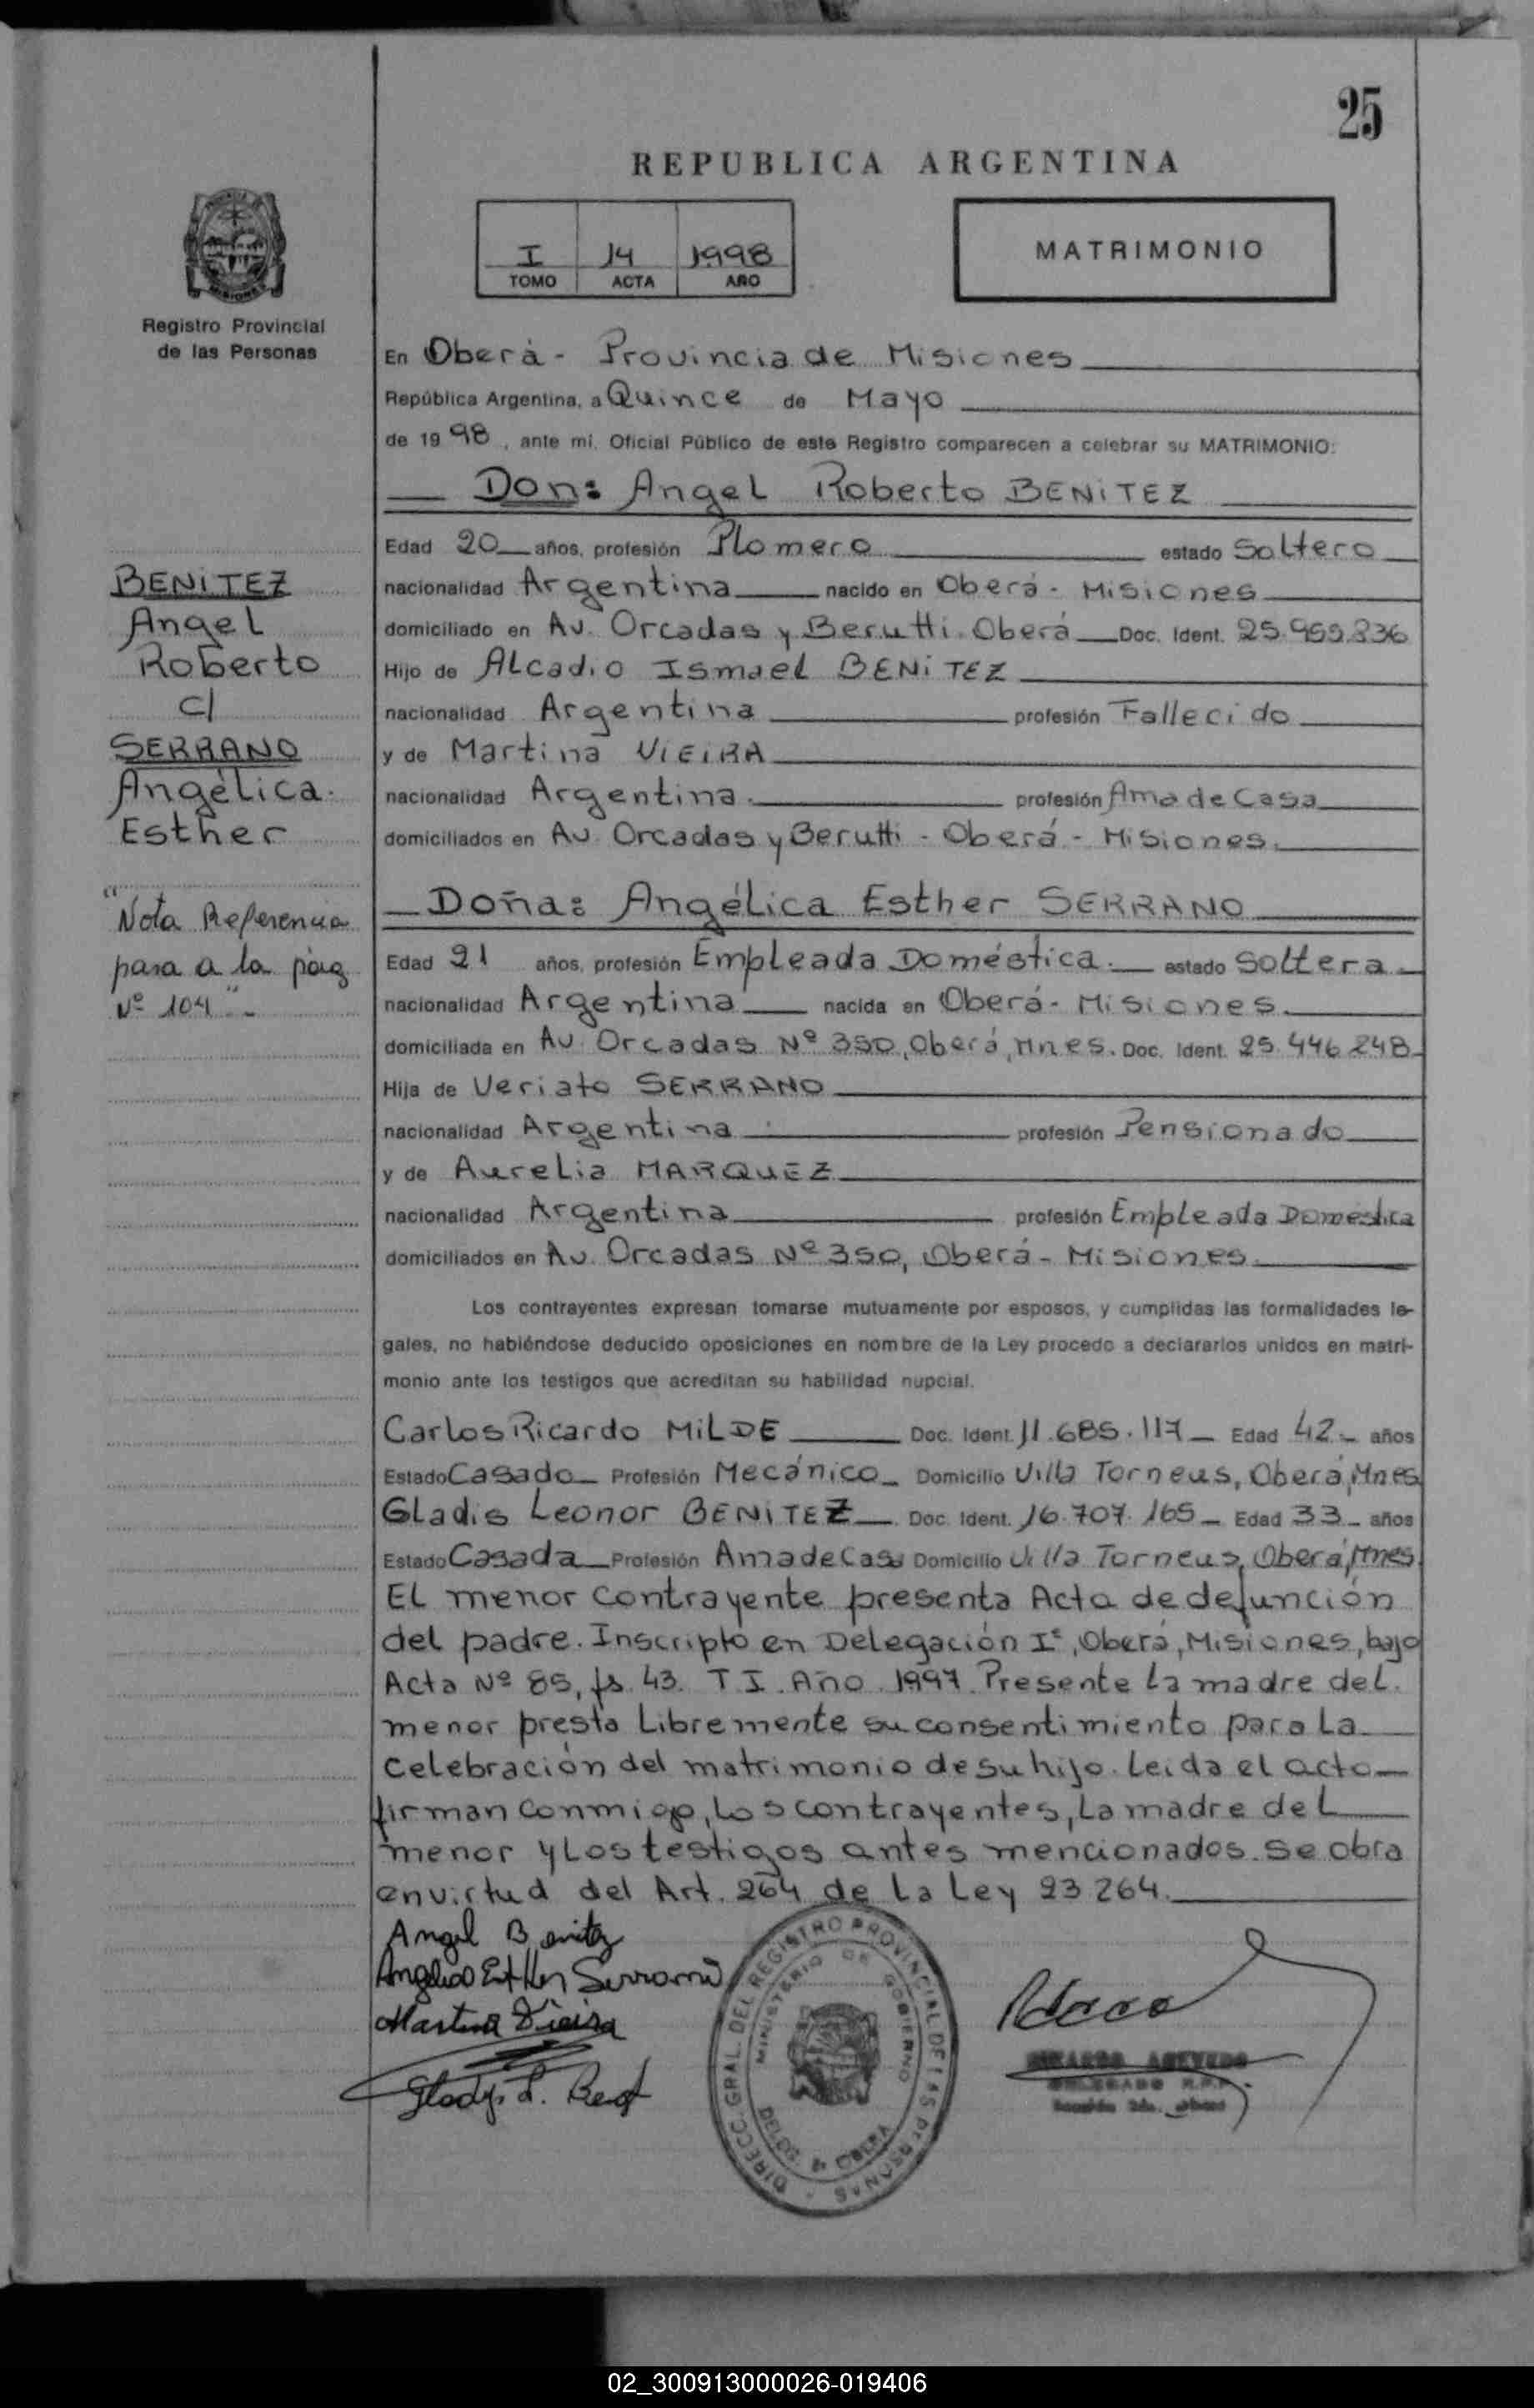 25
REPUBLICA ARGENTINA
I 14 1998
TOMO ACTA AÑO
MATRIMONIO
Registro Provincial
de las Personas
En Oberá - Provincia de Misiones
República Argentina, a Quince de Mayo
de 19 98, ante mí, Oficial Público de este Registro comparecen a celebrar su MATRIMONIO:
Don: Angel Roberto BENITEZ
Edad 20 años, profesión Plomero estado Soltero
nacionalidad Argentina nacido en Oberá - Misiones
domiciliado en Av. Orcadas y Berutti. Oberá Doc. Ident.
Hijo de Alcadio Ismael BENITEZ
nacionalidad Argentina profesión Fallecido
y de Martina VIEIRA
nacionalidad Argentina. profesión Ama de Casa
domiciliados en Av. Orcadas y Berutti - Oberá - Misiones.
BENITEZ
Angel
Roberto
c/
SERRANO
Angélica
Esther
"Nota Referencia
pasa a la pág
Nº 104"-
Doña: Angélica Esther SERRANO
Edad 21 años, profesión Empleada Doméstica. estado Soltera
nacionalidad Argentina nacida en Oberá - Misiones.
domiciliada en Av Orcadas Nº 350, Oberá, Mnes. Doc. Ident. 25.446.248
Hija de Veriato SERRANO
nacionalidad Argentina profesión Pensionado
y de Aurelia MARQUEZ
nacionalidad Argentina profesión Empleada Domestica
domiciliados en Av. Orcadas Nº 350, Oberá - Misiones.
Los contrayentes expresan tomarse mutuamente por esposos, y cumplidas las formalidades le-
gales, no habiéndose deducido oposiciones en nombre de la Ley procedo a declararlos unidos en matri-
monio ante los testigos que acreditan su habilidad nupcial.
Carlos Ricardo MILDE Doc. Ident. 11.685.117 Edad 42 años
Estado Casado Profesión Mecánico Domicilio Villa Torneus, Oberá, Mnes
Gladis Leonor BENITEZ Doc. Ident. 16.707.165 Edad 33 años
Estado Casada Profesión Ama de Casa Domicilio Villa Torneus, Oberá, Mnes.
El menor contrayente presenta Acta de defunción
del padre. Inscripto en Delegación Iº, Oberá, Misiones, bajo
Acta Nº 85, fs. 43. T I. Año. 1997. Presente la madre del
menor presta Libremente su consentimiento para La
celebración del matrimonio de su hijo. Leida el acto
firman conmigo, los contrayentes, la madre del
menor y los testigos antes mencionados. Se obra
en virtud del Art. 264 de La Ley 23 264.
Angel Benitez
Angelica Esther Serrano
Martina Vieira
Gladys L.
DIRECC. GRAL. DEL REGISTRO PROVINCIAL DE LAS PERSONAS
MINISTERIO DE GOBIERNO
OBERA
RICARDO ACEVEDO
DELEGADO R.P.P.
02_300913000026-019406